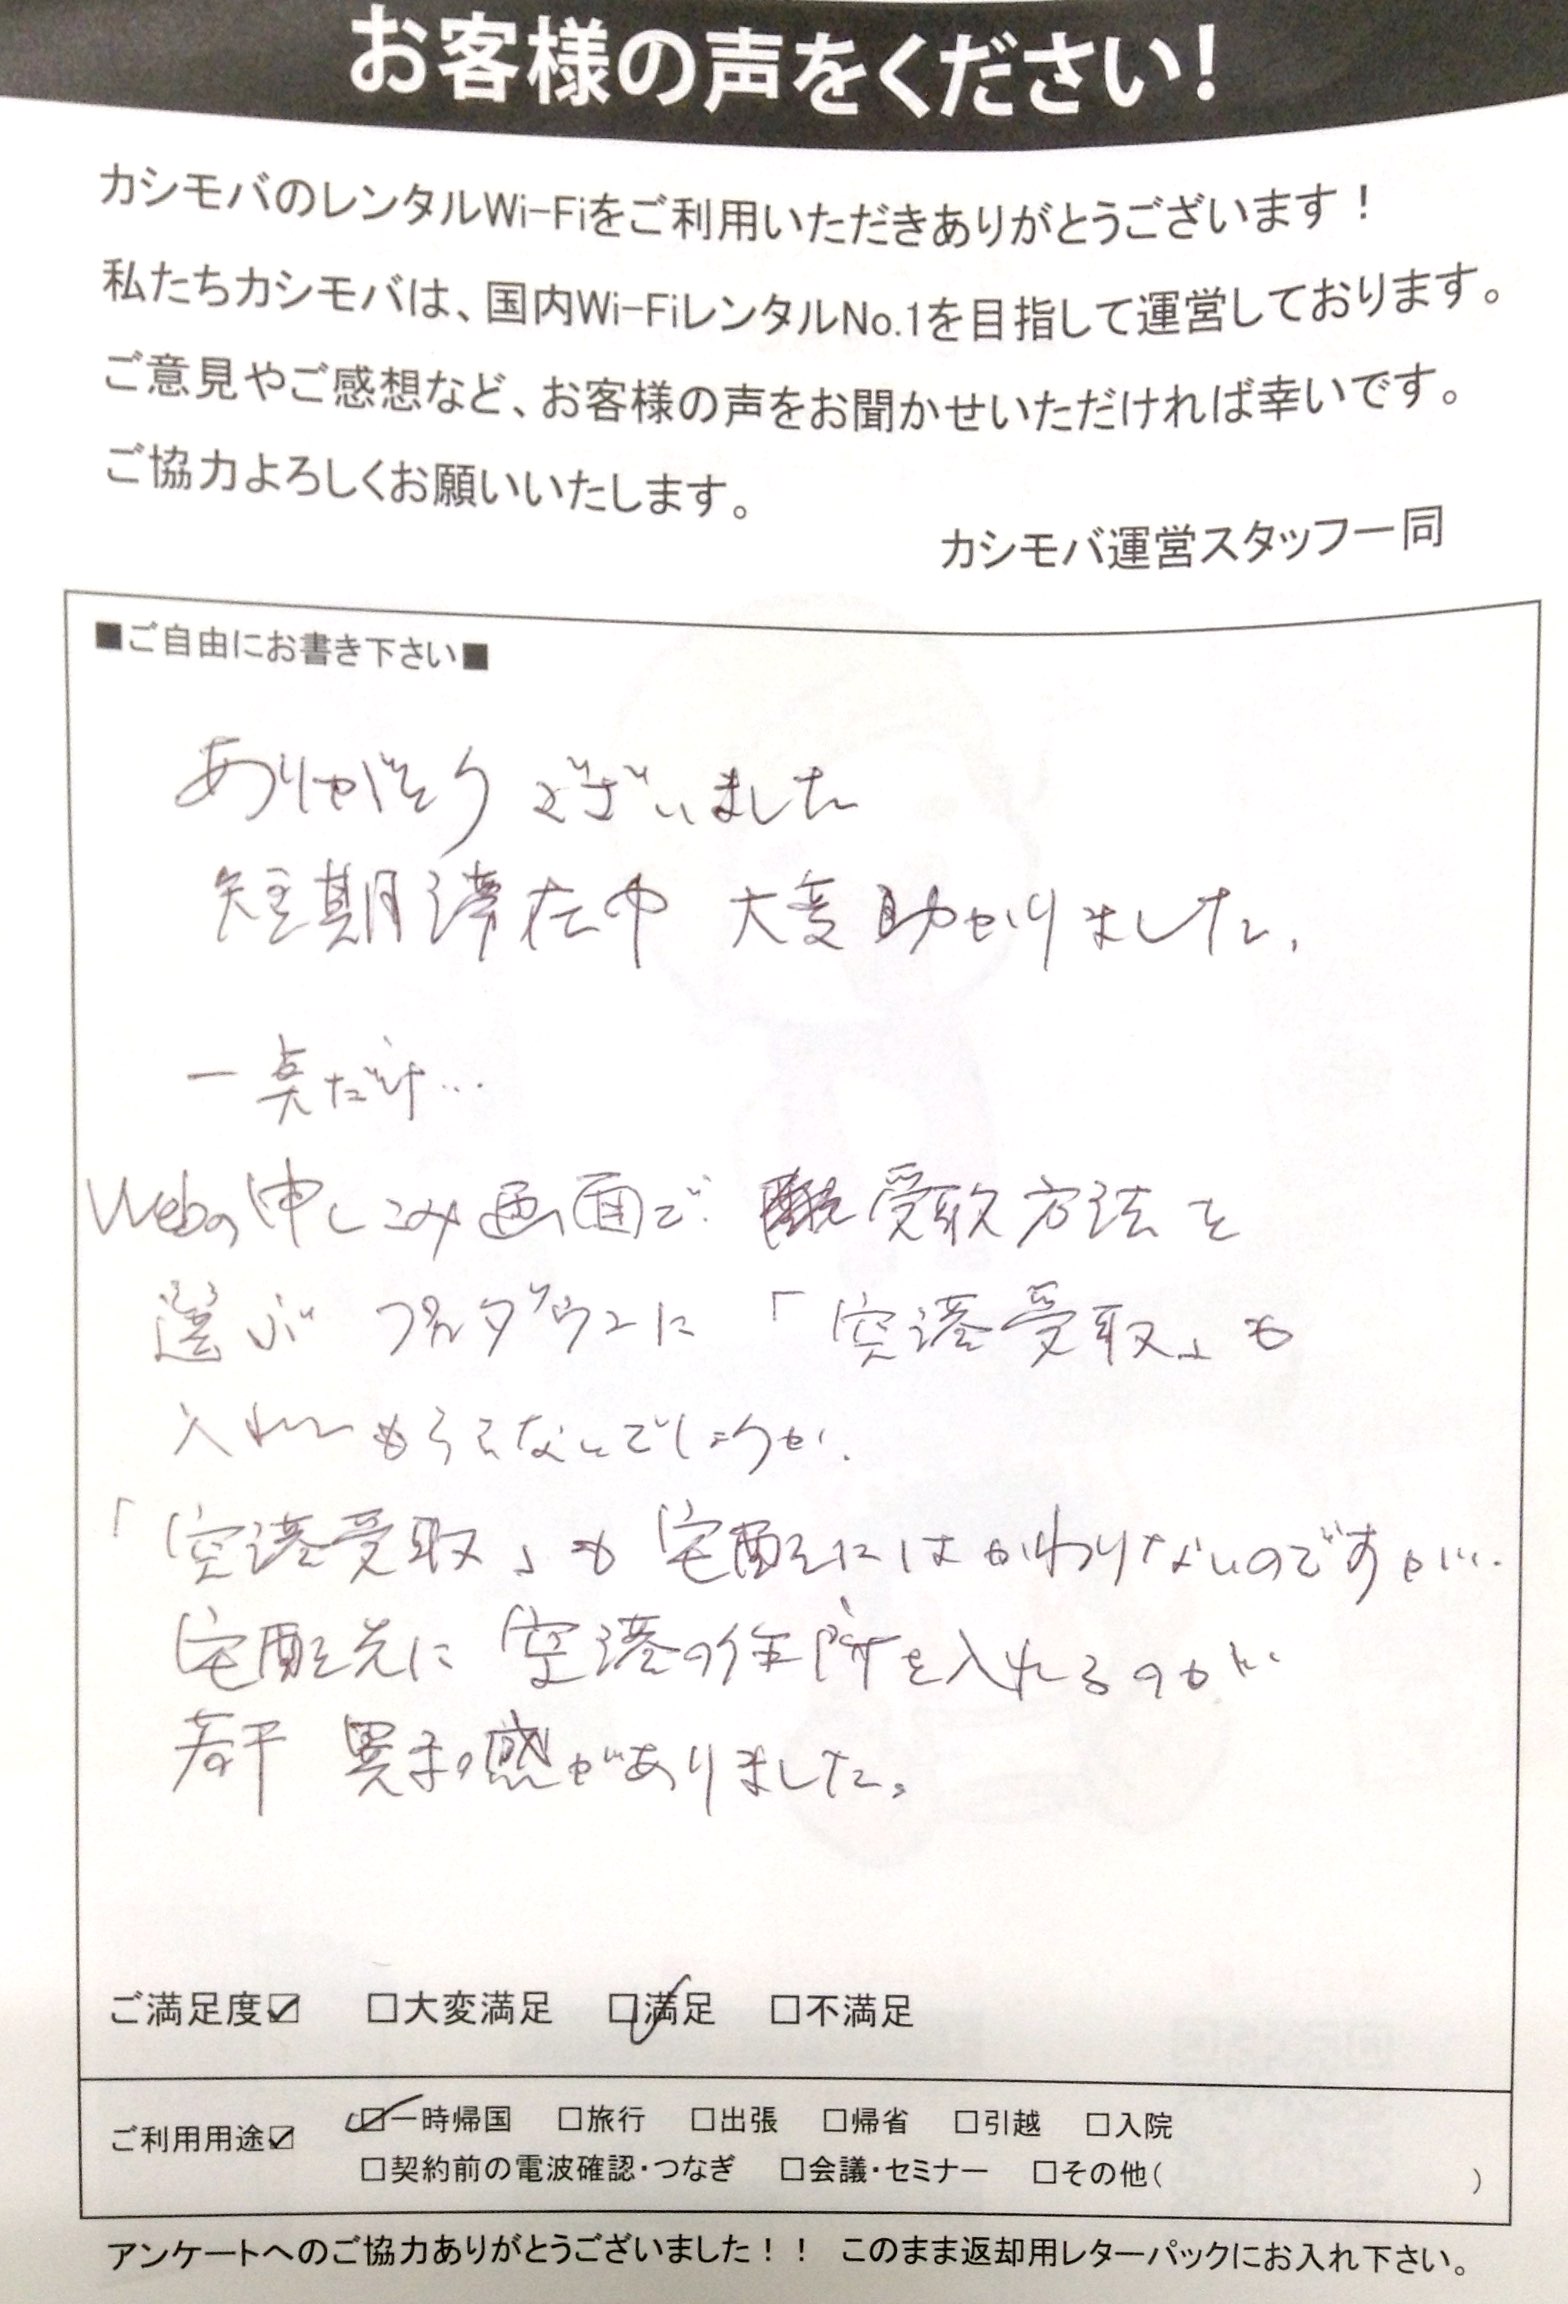 お客様の声をください!
カシモバのレンタルWi-Fiをご利用いただきありがとうございます！
私たちカシモバは、国内Wi-FiレンタルNo.1を目指して運営しております。
ご意見やご感想など、お客様の声をお聞かせいただければ幸いです。
ご協力よろしくお願いいたします。
カシモバ運営スタッフ一同
■ご自由にお書き下さい■
ありがとうございました
短期滞在中 大変助かりました。
一点だけ…
Webの申しこみ画面で 受取方法を
選ぶ プルダウンに 「空港受取」も
入れてもらえないでしょうか。
「空港受取」も宅配にはかわりないのですが…
宅配先に空港の住所を入れるのが
若干 異和感がありました。
ご満足度☑ □大変満足 ☑満足 □不満足
ご利用用途☑ ☑一時帰国 □旅行 □出張 □帰省 □引越 □入院
□契約前の電波確認・つなぎ □会議・セミナー □その他( )
アンケートへのご協力ありがとうございました！！ このまま返却用レターパックにお入れ下さい。